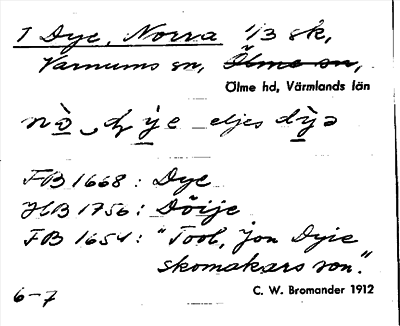 T Dye, Norra 1/3 sk,
Varnums sn, Ölme sn,
Ölme hd, Värmlands län
eljes dỳə
FB 1668: Dye
JEB 1756: Döije
FB 1654: "Tool, Jon Dyie
skomakars son."
6-7 C. W. Bromander 1912